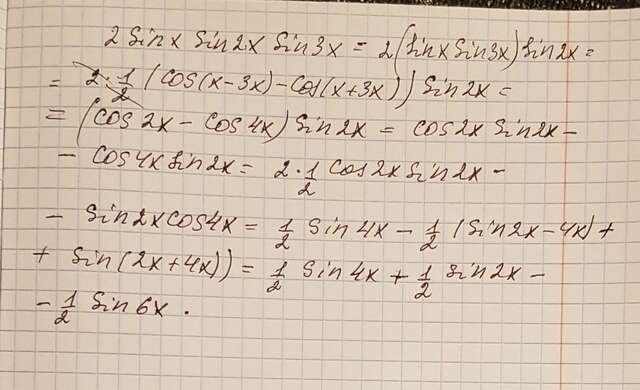 2 sin x sin 2x sin 3x = 2(sin x sin 3x) sin 2x =
= 2 · 1/2 (cos(x-3x) - cos(x+3x)) sin 2x =
= (cos 2x - cos 4x) sin 2x = cos 2x sin 2x -
- cos 4x sin 2x = 2 · 1/2 cos 2x sin 2x -
- sin 2x cos 4x = 1/2 sin 4x - 1/2 (sin 2x - 4x) +
+ sin(2x+4x)) = 1/2 sin 4x + 1/2 sin 2x -
- 1/2 sin 6x .